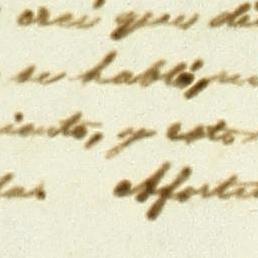 creí que di
se habló, 
iento, y esto
las. Afortu